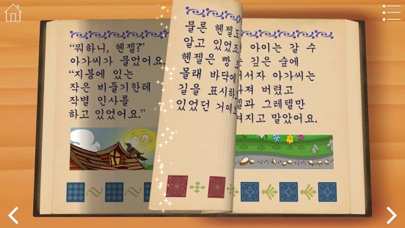 "뭐하니, 헨젤?"
아가씨가 물었어요.
"지붕에 있는
작은 비둘기한테
작별 인사를
하고 있었어요."
물론 헨젤
알고 있었
헨젤은 빵
몰래 바닥에
길을 표시하
있었던 거예
아이는 갈 수
깊은 숲에
서자 아가씨는
져 버렸고
과 그레텔만
겨지고 말았어요.